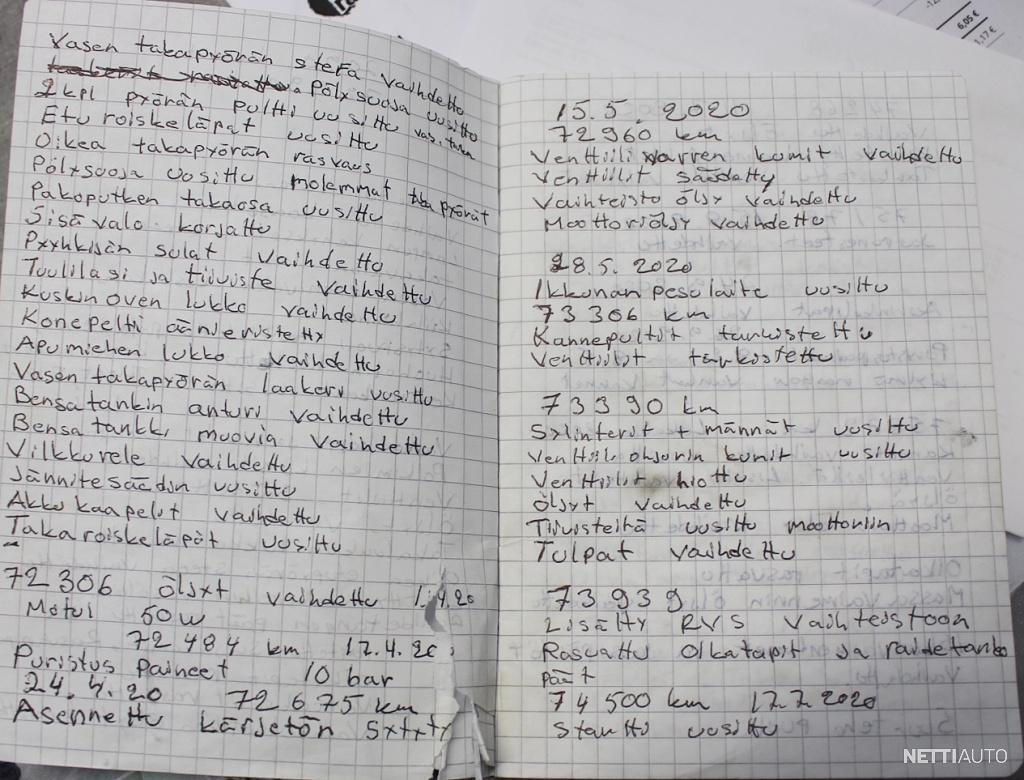 Vasen takapyörän stefa vaihdettu
Pölysuoja uusittu
2 kpl pyörän pultti uusittu vas. taka
Etu roiskeläpät uusittu
Oikea takapyörän rasvaus
Pölysuoja uusittu molemmat takapyörät
Pakoputken takaosa uusittu
Sisävalo korjattu
Pyyhkijän sulat vaihdettu
Tuulilasi ja tiiviste vaihdettu
Kuskin oven lukko vaihdettu
Konepelti äänieristetty
Apumiehen lukko vaihdettu
Vasen takapyörän laakeri uusittu
Bensatankin anturi vaihdettu
Bensatankki muovia vaihdettu
Vilkkurele vaihdettu
Jännitesäädin uusittu
Akku kaapelit vaihdettu
Takaroiskeläpät uusittu
72306 öljyt vaihdettu 1.4.20
Motul 50w
72484 km 17.4.20
Puristus paineet 10 bar
24.4.20 72675 km
Asennettu kärjetön sytyty
15.5.2020
72960 km
Venttiilivarren kumit vaihdettu
Venttiilit säädetty
Vaihteisto öljy vaihdettu
Moottoriöljy vaihdettu
28.5.2020
Ikkunan pesulaite uusittu
73306 km
Kannepultit tarkistettu
Venttiilit tarkistettu
73390 km
Sylinterit + männät uusittu
Venttiiliohjurin kumit uusittu
Venttiilit hiottu
Öljyt vaihdettu
Tiivisteitä uusittu moottoriin
Tulpat vaihdettu
73939
Lisätty RVS vaihteistoon
Rasvattu Olkatapit ja raidetanko
päät
74500 km 17.7.2020
Startti uusittu
NETTIAUTO
6,05 €
1,17 €